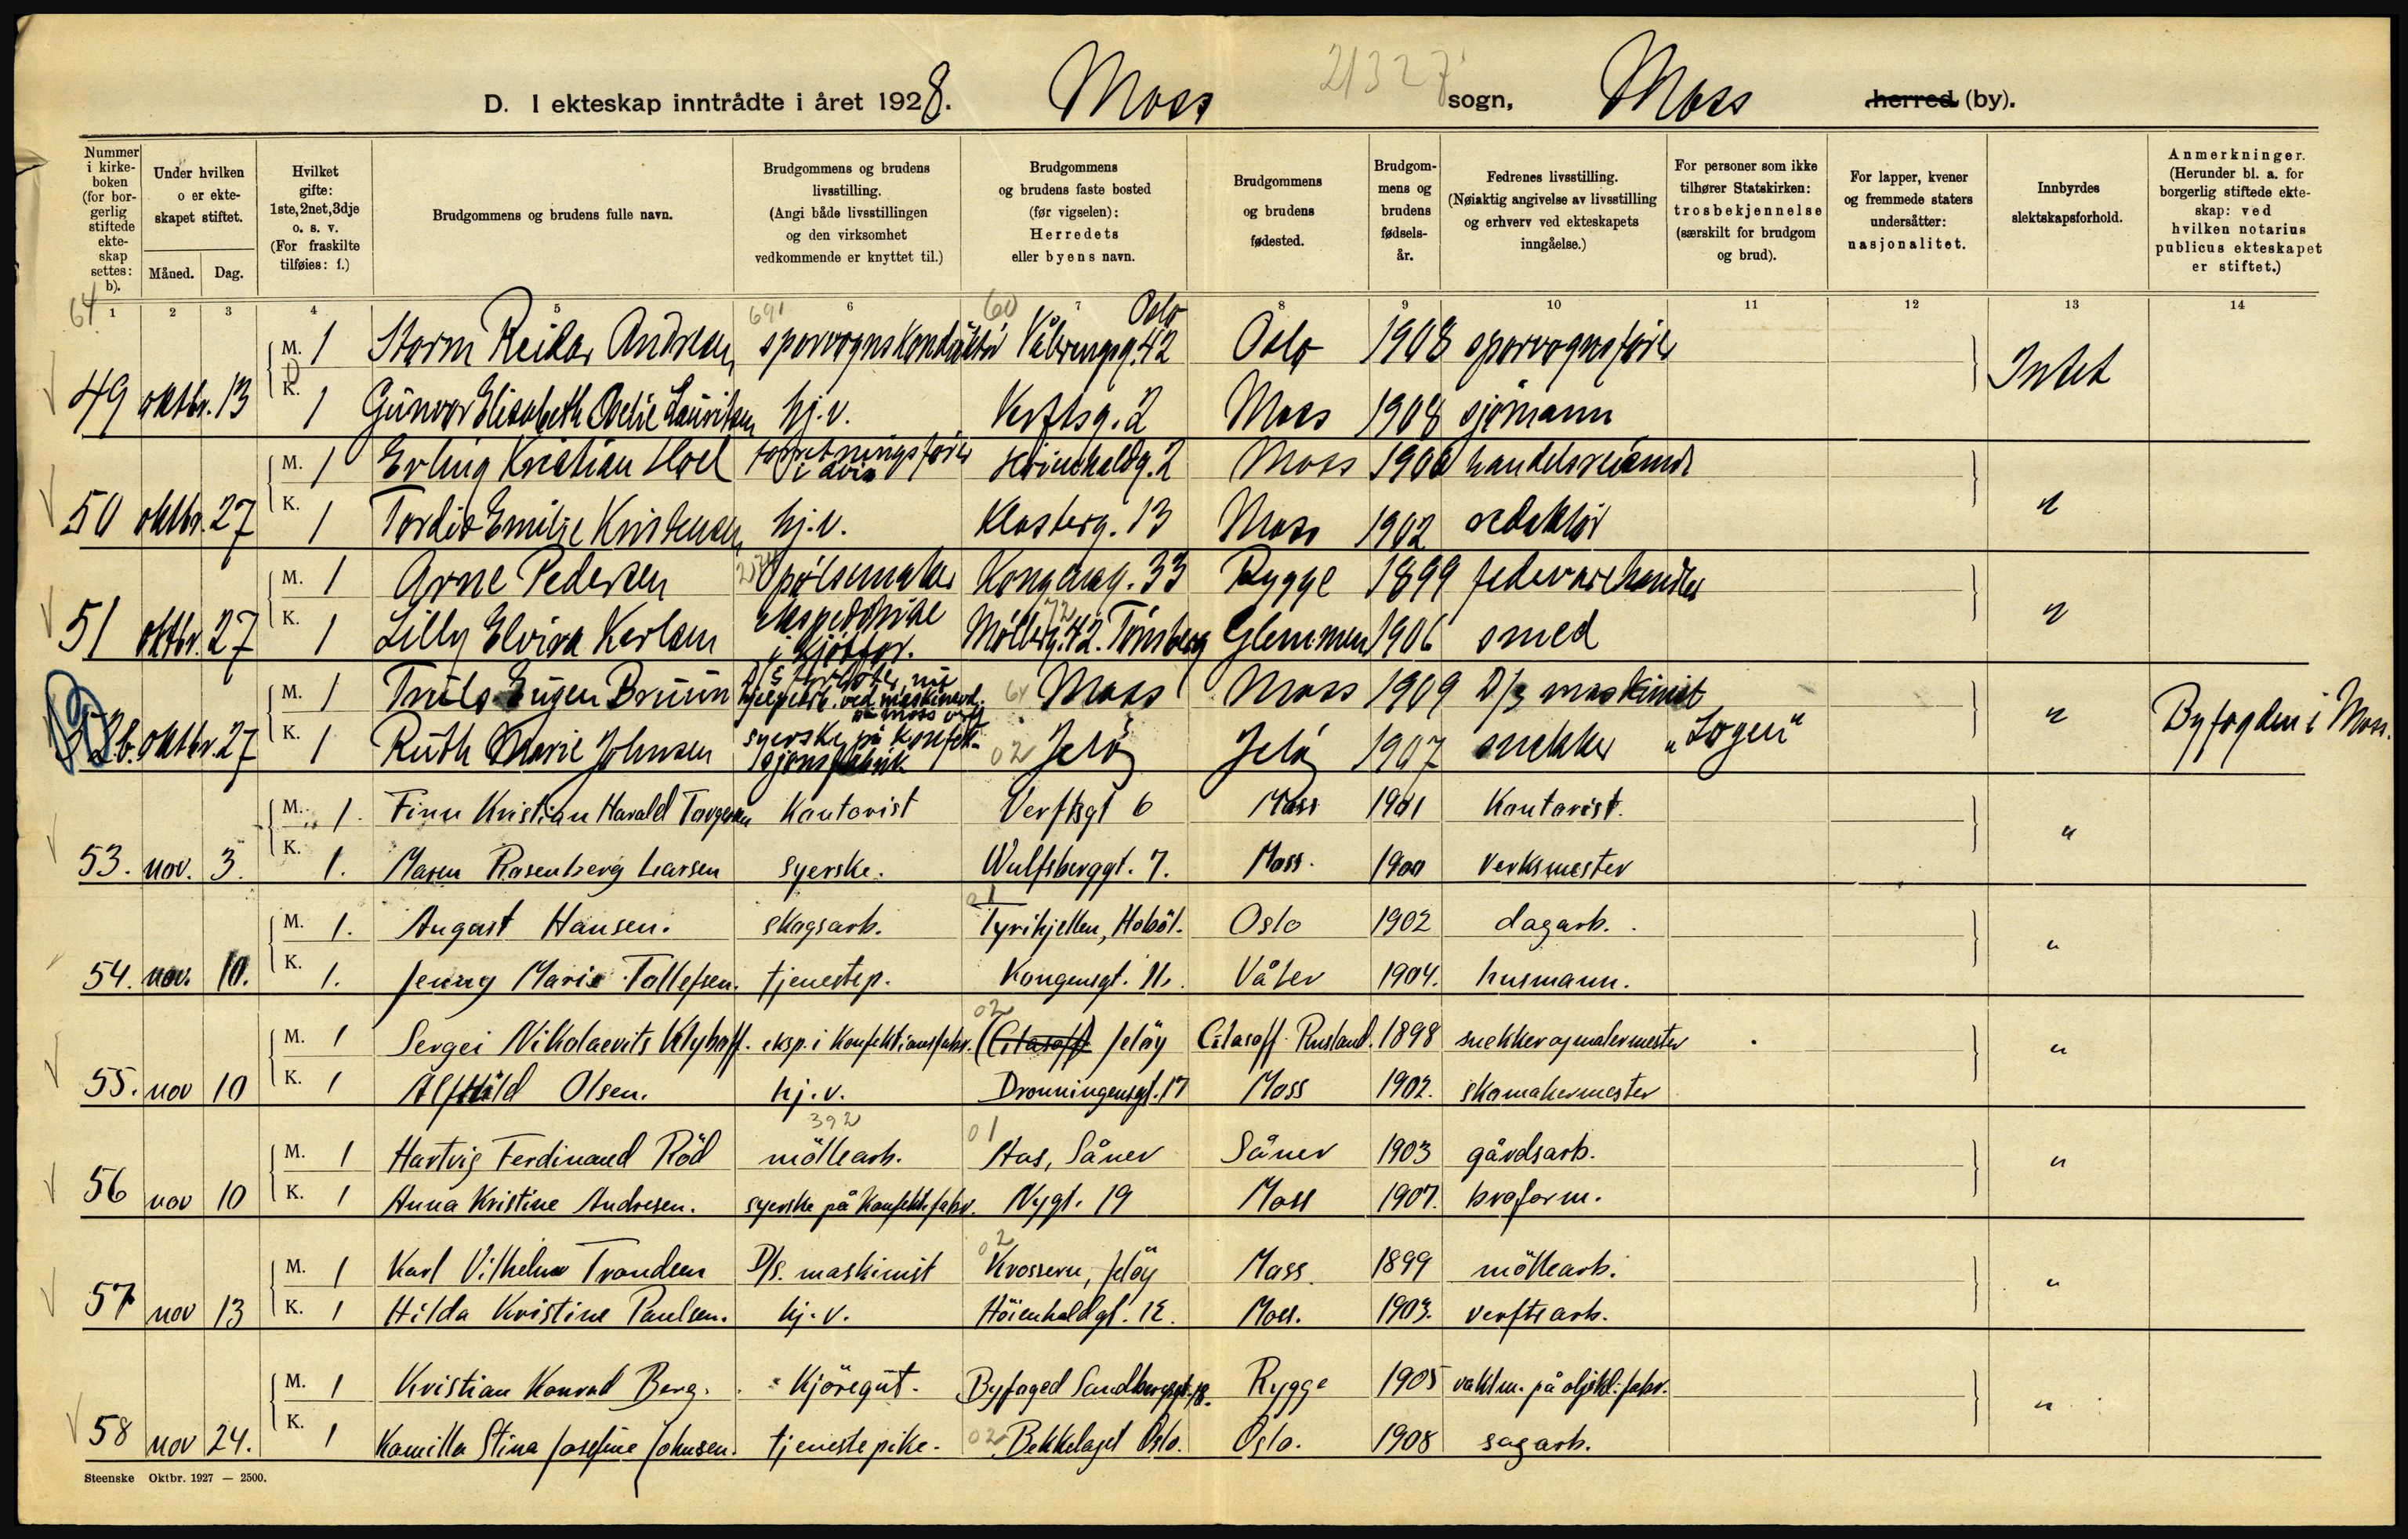 21327
D. I ekteskap inntrådte i året 1928. Moss sogn, Moss herred (by).
Nummer i kirkeboken (for borgerlig stiftede ekteskap settes: b).
Under hvilken o er ekteskapet stiftet.
Måned. Dag.
Hvilket gifte: 1ste, 2net, 3dje o. s. v. (For fraskilte tilføies: f.)
Brudgommens og brudens fulle navn.
Brudgommens og brudens livsstilling. (Angi både livsstillingen og den virksomhet vedkommende er knyttet til.)
Brudgommens og brudens faste bosted (før vigselen): Herredets eller byens navn.
Brudgommens og brudens fødested.
Brudgommens og brudens fødselsår.
Fedrenes livsstilling. (Nøiaktig angivelse av livsstilling og erhverv ved ekteskapets inngåelse.)
For personer som ikke tilhører Statskirken: trosbekjennelse (særskilt for brudgom og brud).
For lapper, kvener og fremmede staters undersåtter: nasjonalitet.
Innbyrdes slektskapsforhold.
Anmerkninger. (Herunder bl. a. for borgerlig stiftede ekteskap: ved hvilken notarius publicus ekteskapet er stiftet.)
64 1 2 3 4 5 6 7 8 9 10 11 12 13 14
691 60 Oslo
M. 1 Storm Reidar Andresen sporvognskonduktör Vålerengsg. 42 Oslo 1908 sporvognsförer
49 oktbr. 13 K. 1 Gunvor Elisabeth Oselie Lauritsen hj.v. Verftsg. 2 Moss 1908 sjömann Intet
M. 1 Erling Kristian Hoel forretningsförer i avis g. 2 Moss 1900 handelsreisende
50 oktbr. 27 K. 1 Tordis Emilie Kristensen hj.v. Klosterg. 13 Moss 1902 redaktör "
M. 1 Arne Pedersen Pölsemaker Kongensg. 33 Rygge 1899 fedevarehandler
51 oktbr. 27 K. 1 Lilly Elvira Karlsen ekspeditrise i kjöttfor. Mölleg. 42. Tönsberg Glemmen 1906 smed "
M. 1 Truls Eugen Bruun D/S nu hjelpearb. ved maskinavd. på Moss v. 64 Moss Moss 1909 D/s maskinist
52b. oktbr. 27 K. 1 Ruth Marie Johnsen syerske på konfeksjonsfabrik 02 Jelöy Jelöy 1907 snekker "Logen" " Byfogden i Moss.
M. 1. Finn Kristian Harald Torgersen Kontorist Verftsgt 6 Moss 1901 Kontorist.
53. nov. 3. K. 1. Maren Rosenberg Larsen syerske. Wulfsberggt. 7. Moss. 1900 verksmester "
M. 1. August Hansen. skogsarb. Tyrihjellen, Hoböl. Oslo 1902 dagarb.
54. nov. 10. K. 1. Jenny Marie Tollefsen. tjenestep. Kongensgt. 11. Våler 1904. husmann. "
02
M. 1 Sergei Nikolaevits Klyhoff. eksp. i Konfektionsfabr. (Citasoff) Jelöy Citasoff Rusland. 1898 snekker og malermester
55. nov 10 K. 1 Alfhild Olsen. hj.v. Dronningensgt. 17 Moss 1902. skomakermester "
392 01
M. 1 Hartvig Ferdinand Röd möllearb. Aas, Såner Såner 1903 gårdsarb.
56 nov 10 K. 1 Anna Kristine Andresen. syerske på Konfekt.fabr. Nygt. 19 Moss 1907. broform. "
02
M. 1 Karl Vilhelm Trondsen D/s. maskinist Krossern, Jelöy Moss 1899 möllearb.
57 nov 13 K. 1 Hilda Kristine Paulsen. hj.v. Höienhaldgt. 12. Moss. 1903. verftsarb. "
M. 1 Kristian Konrad Berg. Kjöregut. Byfoged Sandbergsgt. 18. Rygge 1905 vaktm. på oljekl.fabr.
58 nov 24. K. 1 Kamilla Stina Josefine Johnsen. tjenestepike. 02 Bekkelaget Oslo. Oslo. 1908 sagarb. "
Steenske Oktbr. 1927 — 2500.